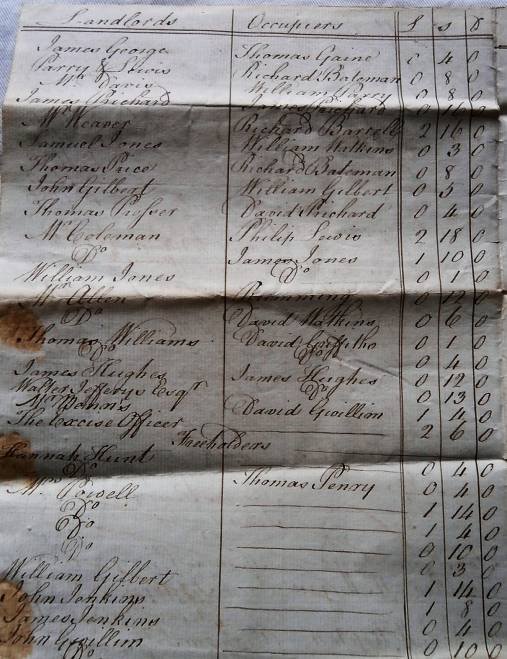 Landlords Occupiers £ s d
James George Thomas Gaine 0 4 0
Parry & Lewis Richard Bateman 0 8 0
Mr Davis William Parry 0 8 0
James Prichard James Prichard 0 16 0
Mr Weaver Richard Barcell 2 16 0
Samuel Jones William Watkins 0 3 0
Thomas Price Richard Bateman 0 8 0
John Gilbert William Gilbert 0 5 0
Thomas Prosser David Prichard 0 4 0
Mr Coleman Philip Lewis 2 18 0
Do James Jones 1 10 0
William Jones Do 0 1 0
Mr Allen 0 12 0
Do David Watkins 0 6 0
Thomas Williams David Griffiths 0 1 0
Do Do 0 4 0
James Hughes James Hughes 0 12 0
Walter Jefferys Esqr Do 0 13 0
David Gwillim 1 4 0
The Excise Officer 2 6 0
Freeholders
Hannah Hunt 0 4 0
Do Thomas Penry 0 4 0
Mrs Powell 1 14 0
Do 1 4 0
Do 0 10 0
Do 0 3 0
William Gilbert 1 14 0
John Jenkins 1 8 0
James Jenkins 0 4 0
John Gwillim 0 10 0
Do